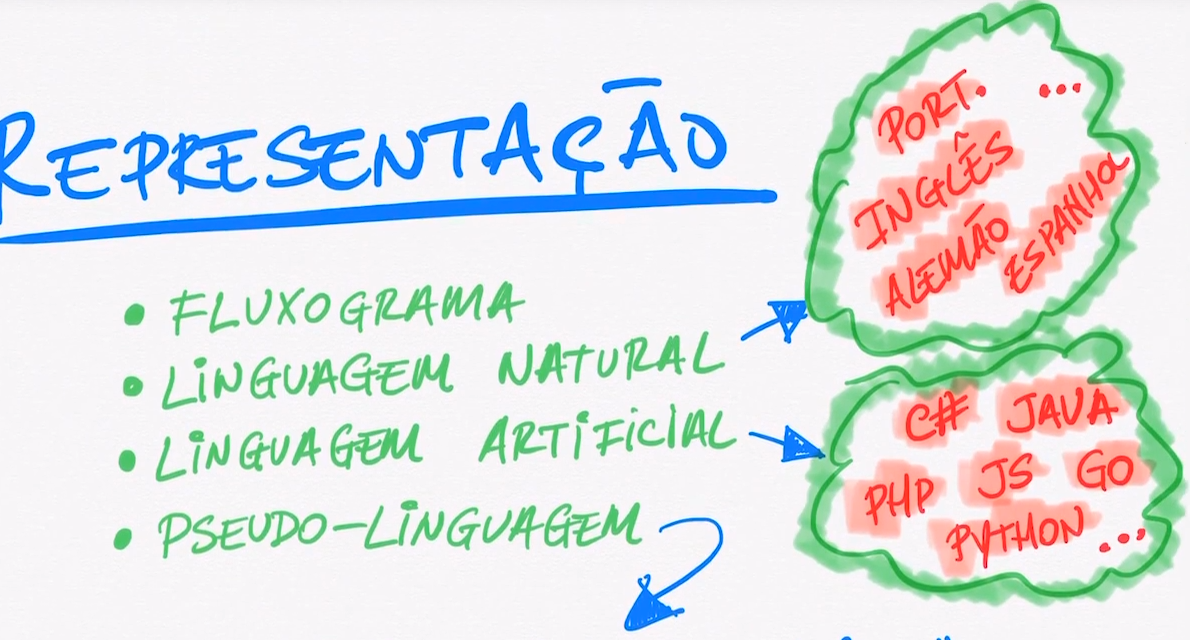 REPRESENTAÇÃO
• FLUXOGRAMA
• LINGUAGEM NATURAL
• LINGUAGEM ARTIFICIAL
• PSEUDO-LINGUAGEM
PORT. ...
INGLÊS
ALEMÃO
ESPANHOL
C# JAVA
PHP JS GO
PYTHON ...